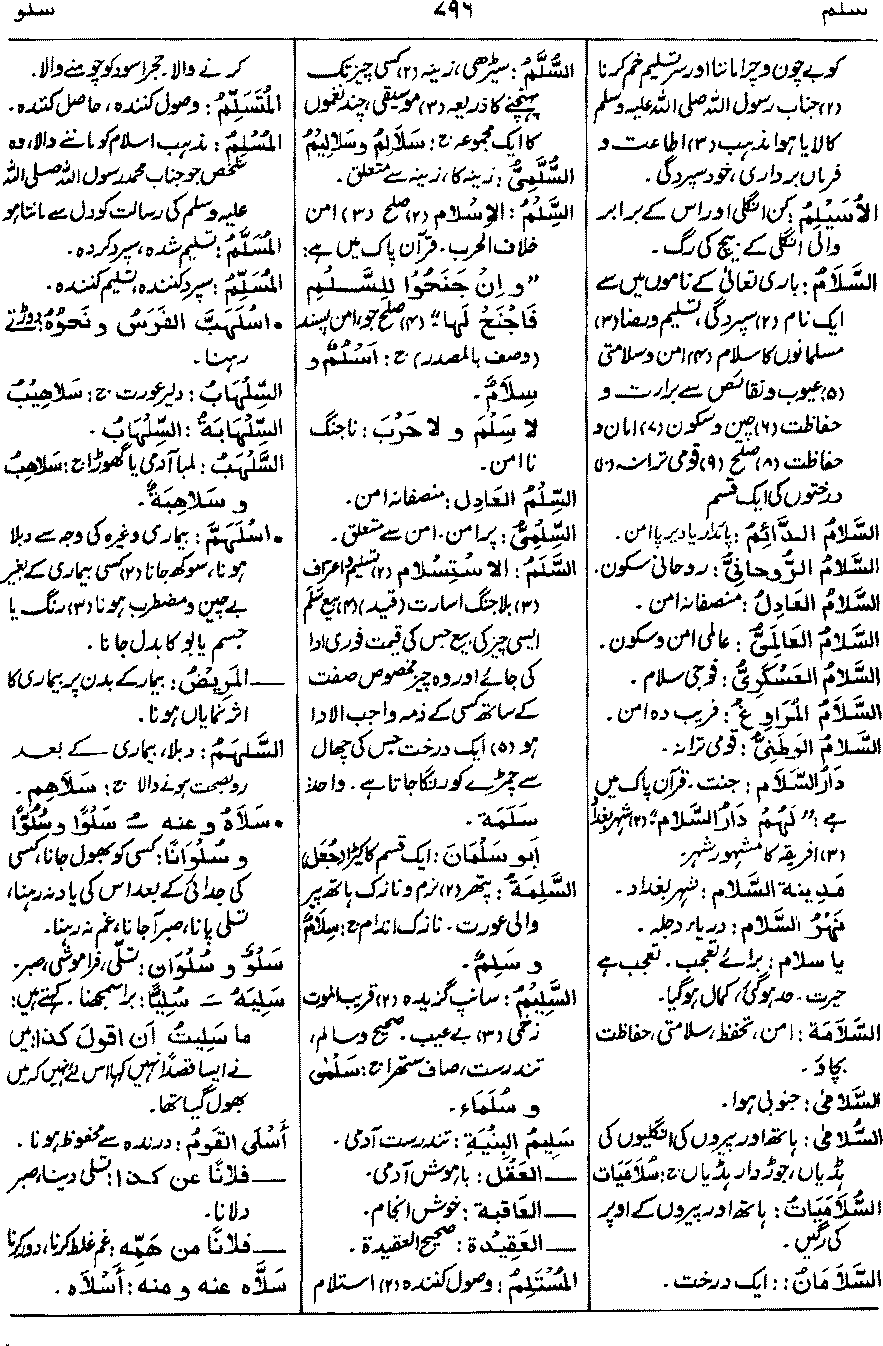 سلم
۷۹۶
سلو
کو بے چون و چرا ماننا اور سر تسلیم خم کرنا
(۲) جناب رسول اللہ صلی اللہ علیہ وسلم
کا لایا ہوا مذہب (۳) اطاعت و
فرماں برداری، خود سپردگی۔
الأُسَیْلِمُ: کن انگلی اور اس کے برابر
والی انگلی کے بیچ کی رگ۔
السَّلَامُ: باری تعالیٰ کے ناموں میں سے
ایک نام (۲) سپردگی، تسلیم و رضا (۳)
مسلمانوں کا سلام (۴) امن و سلامتی
(۵) عیوب و نقائص سے برارت و
حفاظت (۶) چین و سکون (۷) امان و
حفاظت (۸) صلح (۹) قومی ترانہ (۱۰)
درختوں کی ایک قسم
السَّلَامُ الدَّائِمُ: پائدار یا دیرپا امن۔
السَّلَامُ الرُّوحَانِیُّ: روحانی سکون۔
السَّلَامُ العَادِلُ: منصفانہ امن۔
السَّلَامُ العَالَمِیُّ: عالمی امن و سکون۔
السَّلَامُ العَسْکَرِیُّ: فوجی سلام۔
السَّلَامُ المُرَاوِغُ: فریب دہ امن۔
السَّلَامُ الوَطَنِیُّ: قومی ترانہ۔
دَارُ السَّلَام: جنت۔ قرآن پاک میں
ہے: "لَهُمْ دَارُ السَّلَامِ" (۲) شہر بغداد
(۳) افریقہ کا مشہور شہر۔
مَدِینة السَّلَام: شہر بغداد۔
نَهْرُ السَّلَام: دریاء دجلہ۔
یا سلام: برائے تعجب۔ تعجب ہے
حیرت۔ حد ہوگئی، کمال ہوگیا۔
السَّلَامَة: امن، تحفظ، سلامتی، حفاظت
بچاؤ۔
السَّلَامٰی: جنوبی ہوا۔
السُّلَامٰی: ہاتھ اور پیروں کی انگلیوں کی
ہڈیاں، جوڑ دار ہڈیاں ج: سُلَامَیَات
السُّلَامَیَاتُ: ہاتھ اور پیروں کے اوپر
کی رگیں۔
السَّلَامَانُ: : ایک درخت۔
السُّلَّمُ: سیڑھی، زینہ (۲) کسی چیز تک
پہنچنے کا ذریعہ (۳) موسیقی، چند نغموں
کا ایک مجموعہ ج: سَلَالِمُ وسَلَالِیمُ
السُّلَّمِیُّ: زینہ کا، زینہ سے متعلق۔
السِّلْمُ: الإسْلام (۲) صلح (۳) امن
خلاف الحرب۔ قرآن پاک میں ہے:
"وإنْ جَنَحُوا لِلسَّلْمِ
فَاجْنَحْ لَهَا" (۴) صلح جو، امن پسند
(وصف بالمصدر) ج: أَسْلُمٌ و
سِلَامٌ۔
لا سَلْمَ و لا حَرْبَ: ناجنگ
نا امن۔
السِّلْمُ العَادِل: منصفانہ امن۔
السِّلْمِیُّ: پرامن۔ امن سے متعلق۔
السَّلَمُ: الاسْتِسْلام (۲) تسلیم و اعتراف
(۳) بلا جنگ اسارت (قید) (۴) بیع سَلَم
ایسی چیز کی بیع جس کی قیمت فوری ادا
کی جائے اور وہ چیز مخصوص صفت
کے ساتھ کسی کے ذمہ واجب الادا
ہو (۵) ایک درخت جس کی چھال
سے چمڑے کو رنگا جاتا ہے۔ واحد:
سَلَمَة۔
أبو سَلْمَان: ایک قسم کا کیڑا (جُعَل)
السَّلِمَةُ: پتھر (۲) نرم و نازک ہاتھ پیر
والی عورت۔ نازک اندام ج: سِلَامٌ
و سَلِمٌ۔
السَّلِیْمُ: سانپ گزیدہ (۲) قریب الموت
زخمی (۳) بے عیب۔ صحیح و سالم،
تندرست، صاف ستھرا ج: سَلْمٰی
و سُلَمَاء۔
سَلِیمُ البِنْیَة: تندرست آدمی۔
ــــ العَقْل: باہوش آدمی۔
ــــ العَاقِبَة: خوش انجام۔
ــــ العَقِیْدَة: صحیح العقیدة۔
المُسْتَلِمُ: وصول کنندہ (۲) استلام
کرنے والا۔ حجر اسود کو چومنے والا۔
المُتَسَلِّمُ: وصول کنندہ، حاصل کنندہ۔
المُسْلِمُ: مذہب اسلام کو ماننے والا، وہ
شخص جو جناب محمد رسول اللہ صلی اللہ
علیہ وسلم کی رسالت کو دل سے مانتا ہو
المُسَلَّمُ: تسلیم شدہ، سپرد کردہ۔
المُسَلِّمُ: سپرد کنندہ، تسلیم کنندہ۔
• اسْلَهَبَّ الفَرَسُ و نَحوُهُ: دوڑتے
رہنا۔
السِّلْهَابُ: دلیر عورت ج: سَلَاهِیْبُ
السِّلْهَابَةُ: السِّلْهَابُ۔
السَّلْهَبُ: لمبا آدمی یا گھوڑا ج: سَلَاهِبُ
و سَلَاهِبَةٌ۔
• اسْلَهَمَّ: بیماری وغیرہ کی وجہ سے دبلا
ہونا، سوکھ جانا (۲) کسی بیماری کے بغیر
بے چین و مضطرب ہونا (۳) رنگ یا
جسم یا بو کا بدل جانا۔
ــــ المَرِیْضُ: بیمار کے بدن پر بیماری کا
اثر نمایاں ہونا۔
السَّلْهَمُ: دبلا، بیماری کے بعد
روبصحت ہونے والا ج: سَلَاهِم۔
• سَلَاهُ و عنه ــُـ سَلْوًا وسُلُوًّا
و سُلْوَانًا: کسی کو بھول جانا، کسی
کی جدائی کے بعد اس کی یاد نہ رہنا،
تسلی پانا، صبر آجانا، غم نہ رہنا۔
سَلْوٌ و سُلْوَان: تسلّی، فراموشی، صبر۔
سَلِیَهُ ــَـ سُلِیًّا: برا سمجھنا۔ کہتے ہیں:
ما سَلِیتُ أن أقولَ کذا: میں
نے ایسا قصداً نہیں کہا اس لئے نہیں کہ میں
بھول گیا تھا۔
أَسْلَی القَومُ: درندہ سے محفوظ ہونا۔
ــــ فلانًا عن کذا: تسلی دینا، صبر
دلانا۔
ــــ فلانًا من هَمِّه: غم غلط کرنا، دور کرنا
سَلَّاه عنه و منه: أَسْلَاه۔